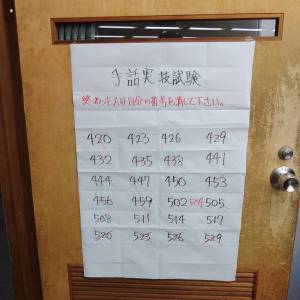 手話実技試験
終わった人は自分の番号を消して下さい。
420 423 426 429
432 435 438 441
444 447 450 453
456 459 502 504 505
508 511 514 517
520 523 526 529